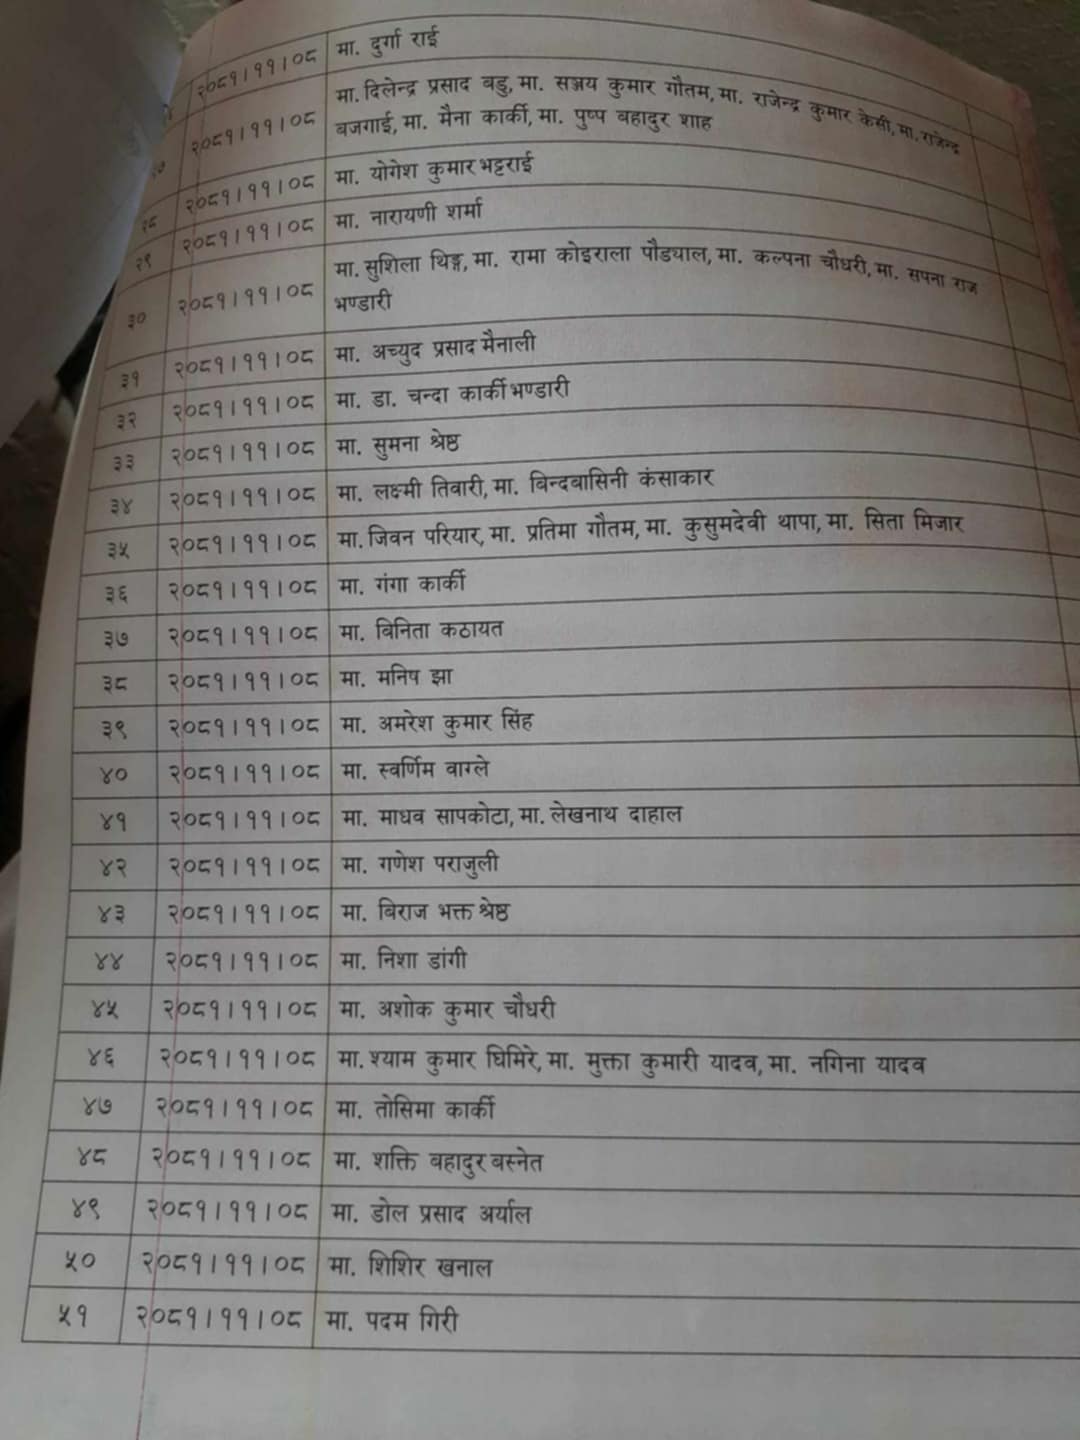 २०८१।११।०८ मा. दुर्गा राई
२०८१।११।०८ मा. दिलेन्द्र प्रसाद बडु, मा. सञ्जय कुमार गौतम, मा. राजेन्द्र कुमार केसी, मा. राजेन्द्र
बजगाई, मा. मैना कार्की, मा. पुष्प बहादुर शाह
२८ २०८१।११।०८ मा. योगेश कुमार भट्टराई
२९ २०८१।११।०८ मा. नारायणी शर्मा
३० २०८१।११।०८ मा. सुशिला थिङ्ग, मा. रामा कोइराला पौड्याल, मा. कल्पना चौधरी, मा. सपना राज
भण्डारी
३१ २०८१।११।०८ मा. अच्युद प्रसाद मैनाली
३२ २०८१।११।०८ मा. डा. चन्दा कार्की भण्डारी
३३ २०८१।११।०८ मा. सुमना श्रेष्ठ
३४ २०८१।११।०८ मा. लक्ष्मी तिवारी, मा. बिन्दबासिनी कंसाकार
३५ २०८१।११।०८ मा. जिवन परियार, मा. प्रतिमा गौतम, मा. कुसुमदेवी थापा, मा. सिता मिजार
३६ २०८१।११।०८ मा. गंगा कार्की
३७ २०८१।११।०८ मा. बिनिता कठायत
३८ २०८१।११।०८ मा. मनिष झा
३९ २०८१।११।०८ मा. अमरेश कुमार सिंह
४० २०८१।११।०८ मा. स्वर्णिम वाग्ले
४१ २०८१।११।०८ मा. माधव सापकोटा, मा. लेखनाथ दाहाल
४२ २०८१।११।०८ मा. गणेश पराजुली
४३ २०८१।११।०८ मा. बिराज भक्त श्रेष्ठ
४४ २०८१।११।०८ मा. निशा डांगी
४५ २०८१।११।०८ मा. अशोक कुमार चौधरी
४६ २०८१।११।०८ मा. श्याम कुमार घिमिरे, मा. मुक्ता कुमारी यादव, मा. नगिना यादव
४७ २०८१।११।०८ मा. तोसिमा कार्की
४८ २०८१।११।०८ मा. शक्ति बहादुर बस्नेत
४९ २०८१।११।०८ मा. डोल प्रसाद अर्याल
५० २०८१।११।०८ मा. शिशिर खनाल
५१ २०८१।११।०८ मा. पदम गिरी